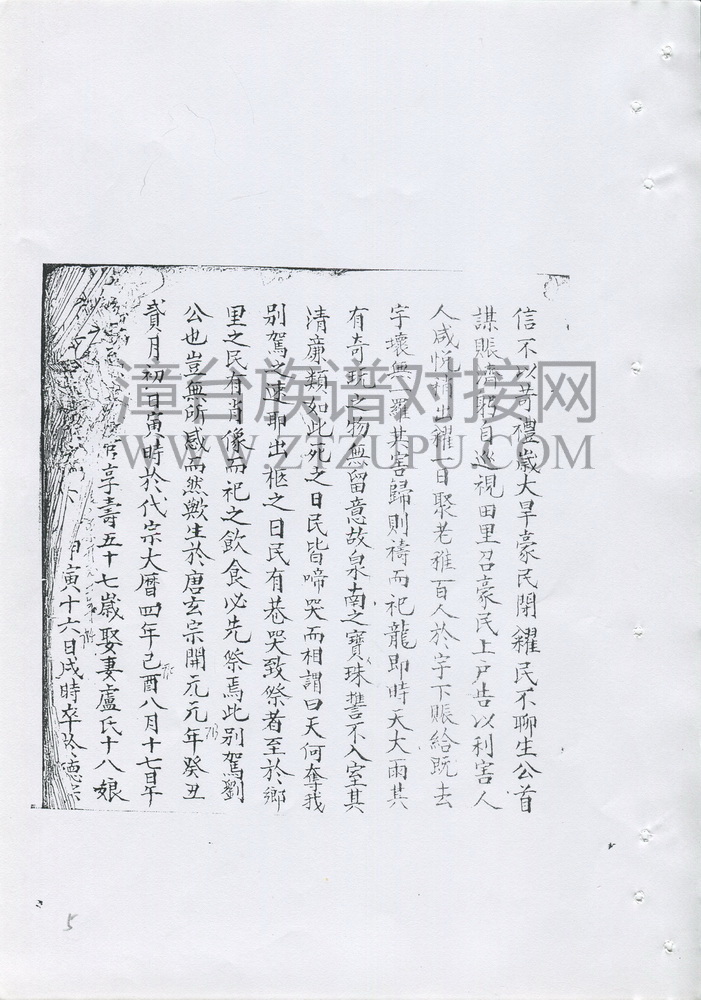 信不以苛禮歲大旱豪民閉糴民不聊生公首
謀賬濟躬自巡視田里召豪民上戶告以利害人
人咸悅有出糴一日聚老稚百人於宇下賬給既去
宇壞無一羅其害歸則禱而祀龍即時天大雨其
有奇玩之物無留意故泉南之寶珠誓不入室其
清廉類如此死之日民皆啼哭而相謂曰天何奪我
別駕之速耶出柩之日民有巷哭致祭者至於鄉
里之民有肖像而祀之飲食必先祭焉此別駕劉
公也豈無所感而然歟生於唐玄宗開元元年癸丑
貳月初一日寅時於代宗大曆四年己酉八月十七日午
官享壽五十七歲娶妻盧氏十八娘
寅十六日戌時卒於德宗
漳台族谱对接网
WWW.ZTZUPU.COM
5